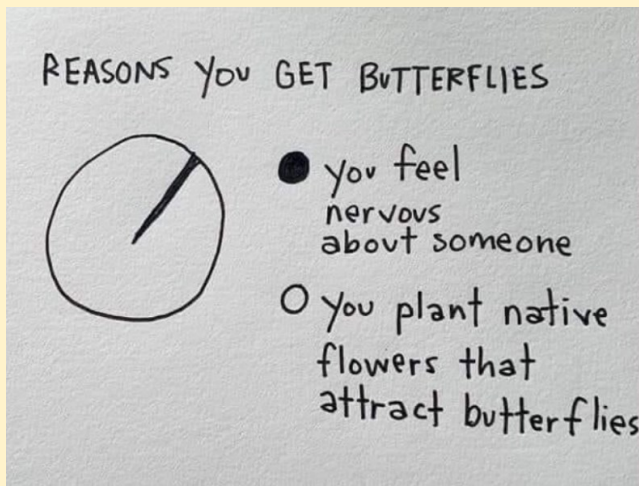 REASONS YOU GET BUTTERFLIES
you feel
nervous
about someone
you plant native
flowers that
attract butterflies